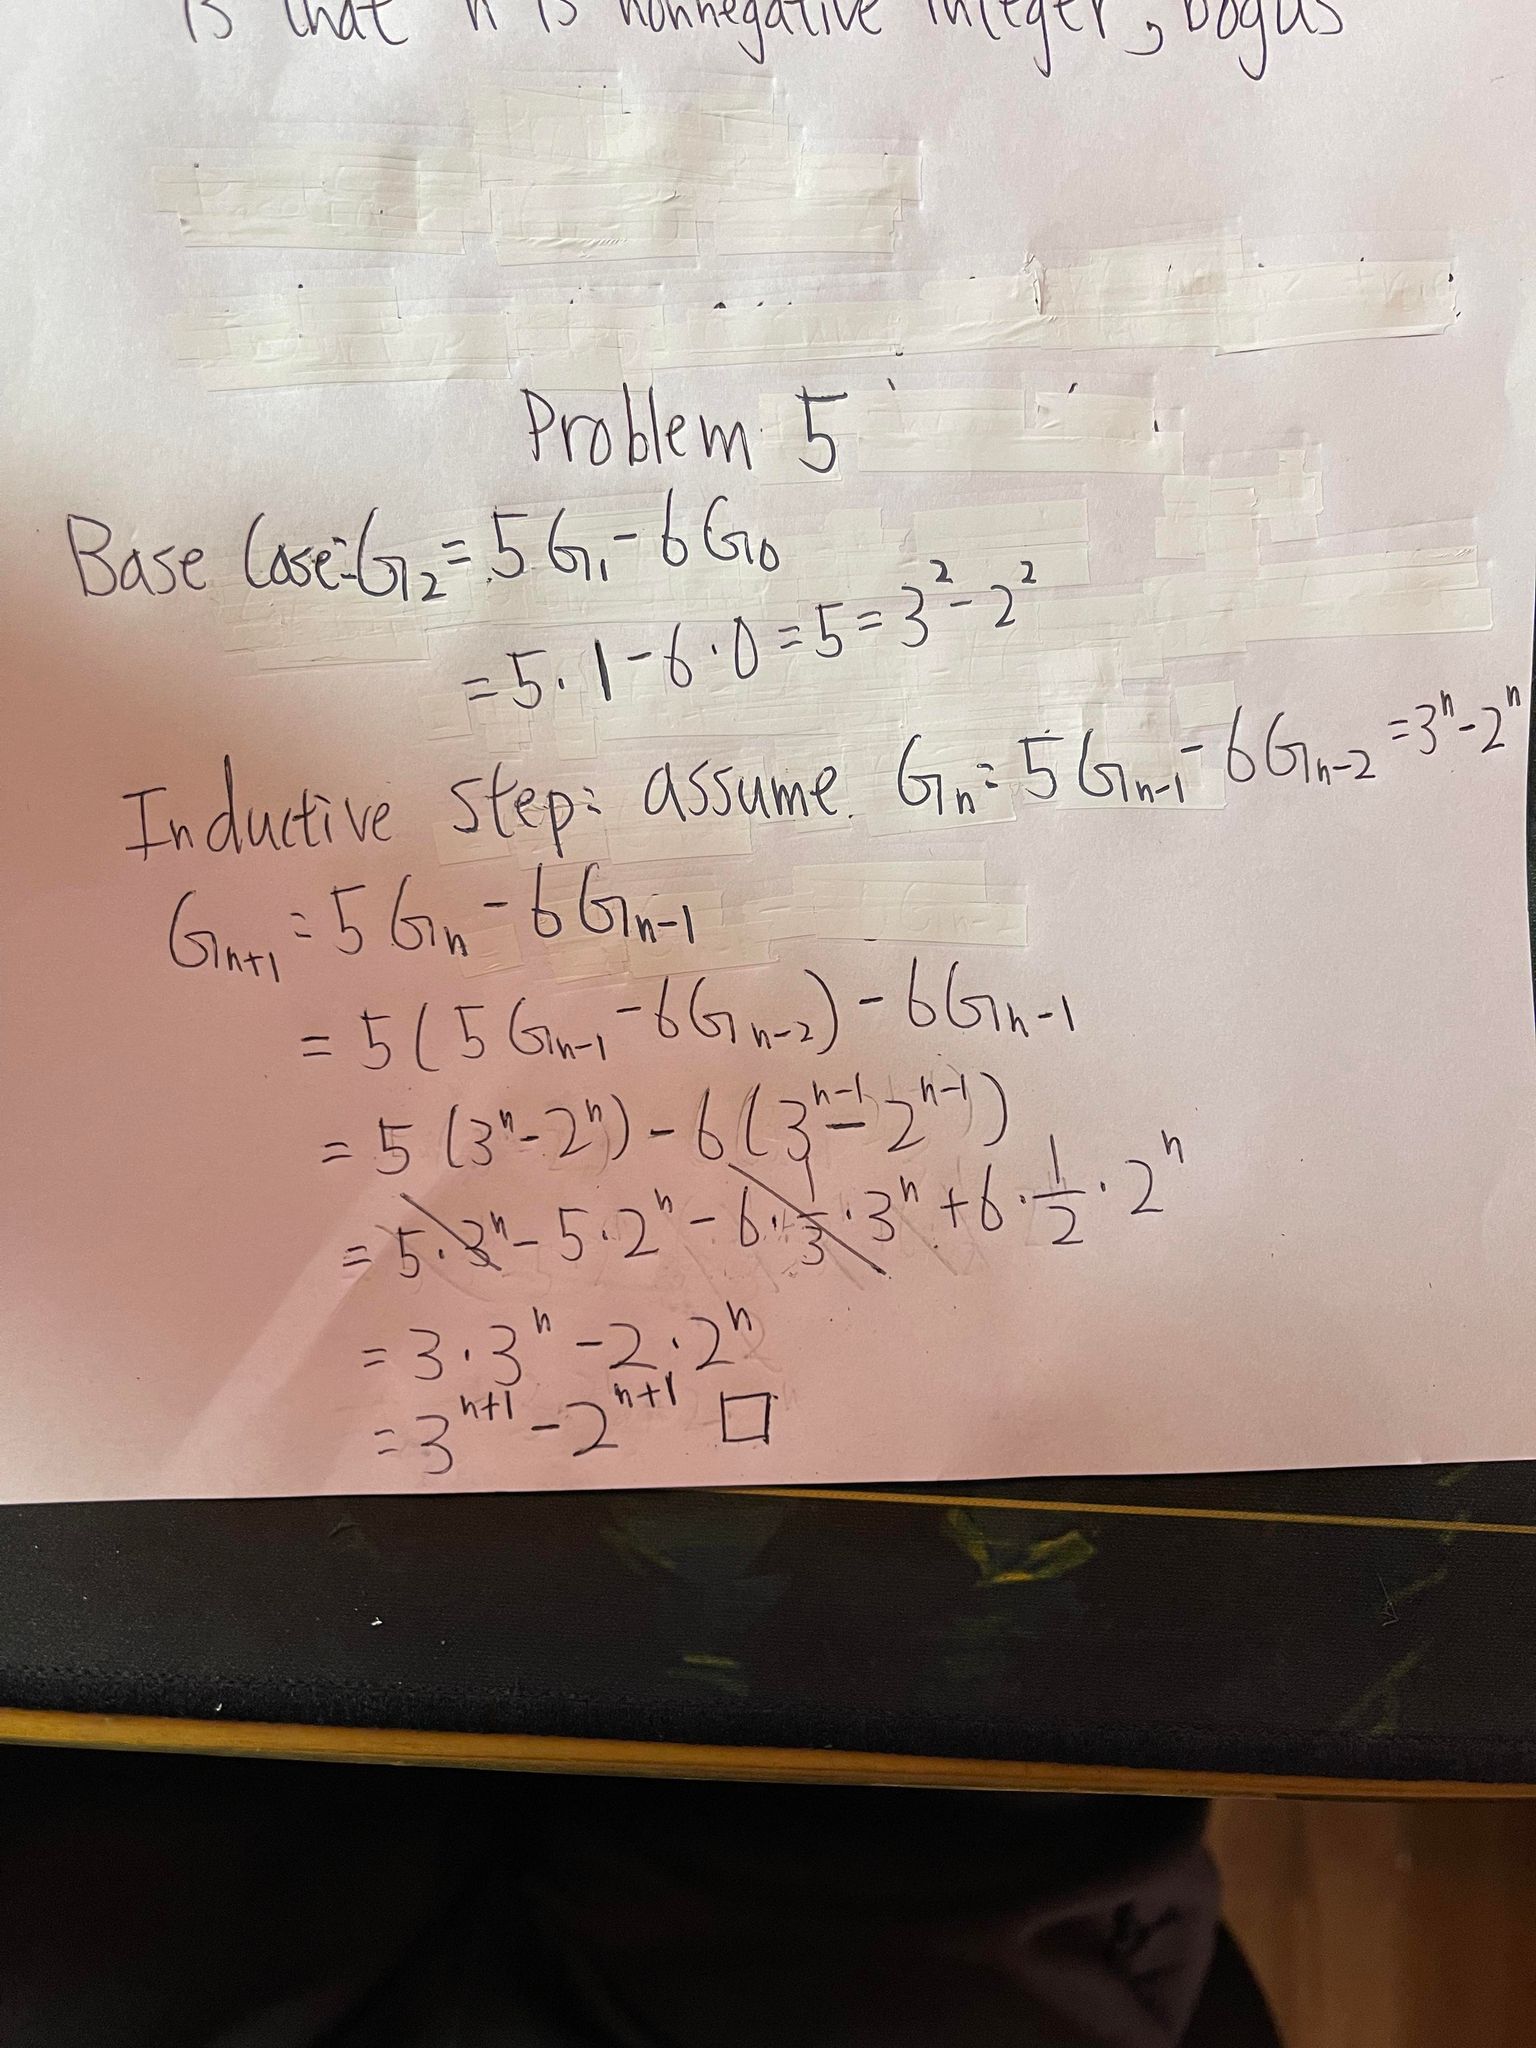 is that n is nonnegative integer, bogus
Problem 5
Base Case: G₂ = 5G₁ - 6G₀
= 5·1 - 6·0 = 5 = 3² - 2²
Inductive step: assume. Gₙ = 5Gₙ₋₁ - 6Gₙ₋₂ = 3ⁿ - 2ⁿ
Gₙ₊₁ = 5Gₙ - 6Gₙ₋₁
= 5(5Gₙ₋₁ - 6Gₙ₋₂) - 6Gₙ₋₁
= 5(3ⁿ - 2ⁿ) - 6(3ⁿ⁻¹ - 2ⁿ⁻¹)
= 5·3ⁿ - 5·2ⁿ - 6·1/3·3ⁿ + 6·1/2·2ⁿ
= 3·3ⁿ - 2·2ⁿ
= 3ⁿ⁺¹ - 2ⁿ⁺¹ □